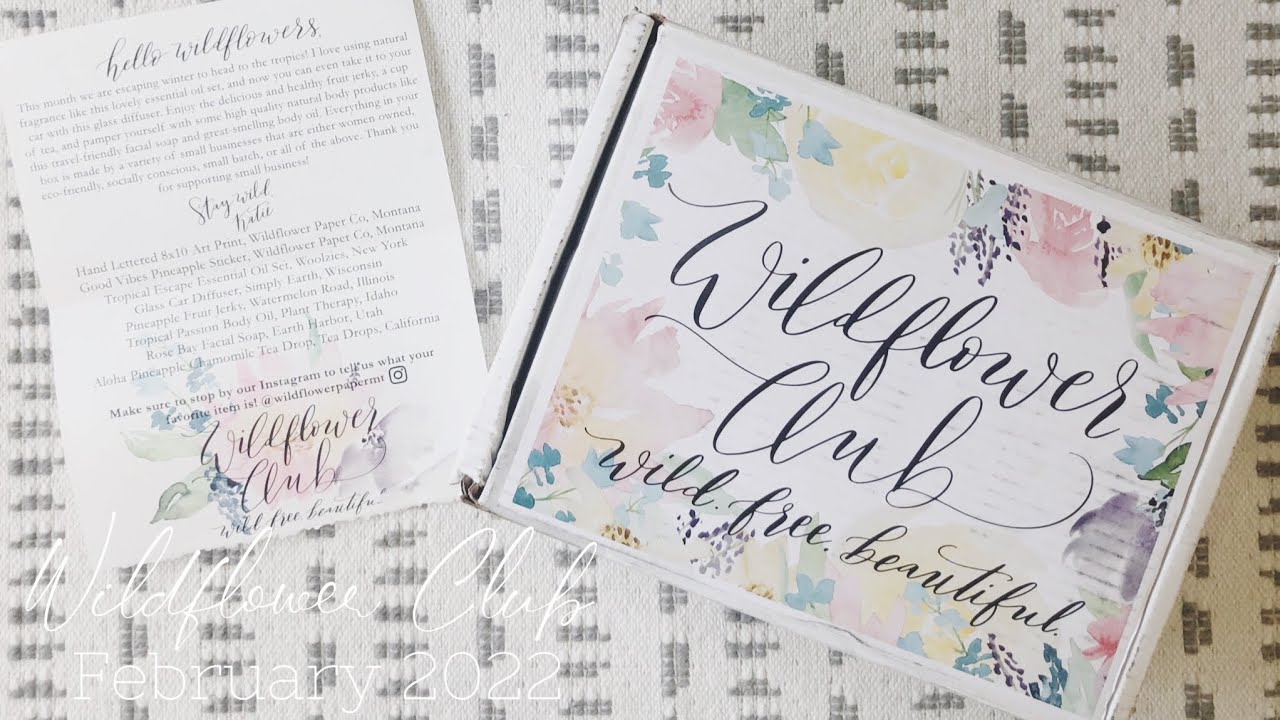 hello wildflowers,
This month we are escaping winter to head to the tropics! I love using natural
fragrance like this lovely essential oil set, and now you can even take it to your
car with this glass diffuser. Enjoy the delicious and healthy fruit jerky, a cup
of tea, and pamper yourself with some high quality natural body products like
this travel-friendly facial soap and great smelling body oil. Everything in your
box is made by a variety of small businesses that are either women owned,
eco-friendly, socially conscious, small batch, or all of the above. Thank you
for supporting small business!
Stay wild
Katie
Hand Lettered 8x10 Art Print, Wildflower Paper Co, Montana
Good Vibes Pineapple Sticker, Wildflower Paper Co, Montana
Tropical Escape Essential Oil Set, Woolzies, New York
Glass Car Diffuser, Simply Earth, Wisconsin
Pineapple Fruit Jerky, Watermelon Road, Illinois
Tropical Passion Body Oil, Plant Therapy, Idaho
Rose Bay Facial Soap, Earth Harbor, Utah
Aloha Pineapple Chamomile Tea Drop, Tea Drops, California
Make sure to stop by our Instagram to tell us what your
favorite item is! @wildflowerpapermt
Wildflower
Club
wild. free. beautiful.
Wildflower
Club
wild. free. beautiful.
Wildflower Club
February 2022